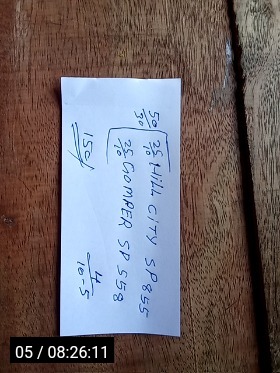 50/30
25/10 HILL CITY SP855
25/10 GOMPER SP 558
150/
4
10-5
05 / 08:26:11